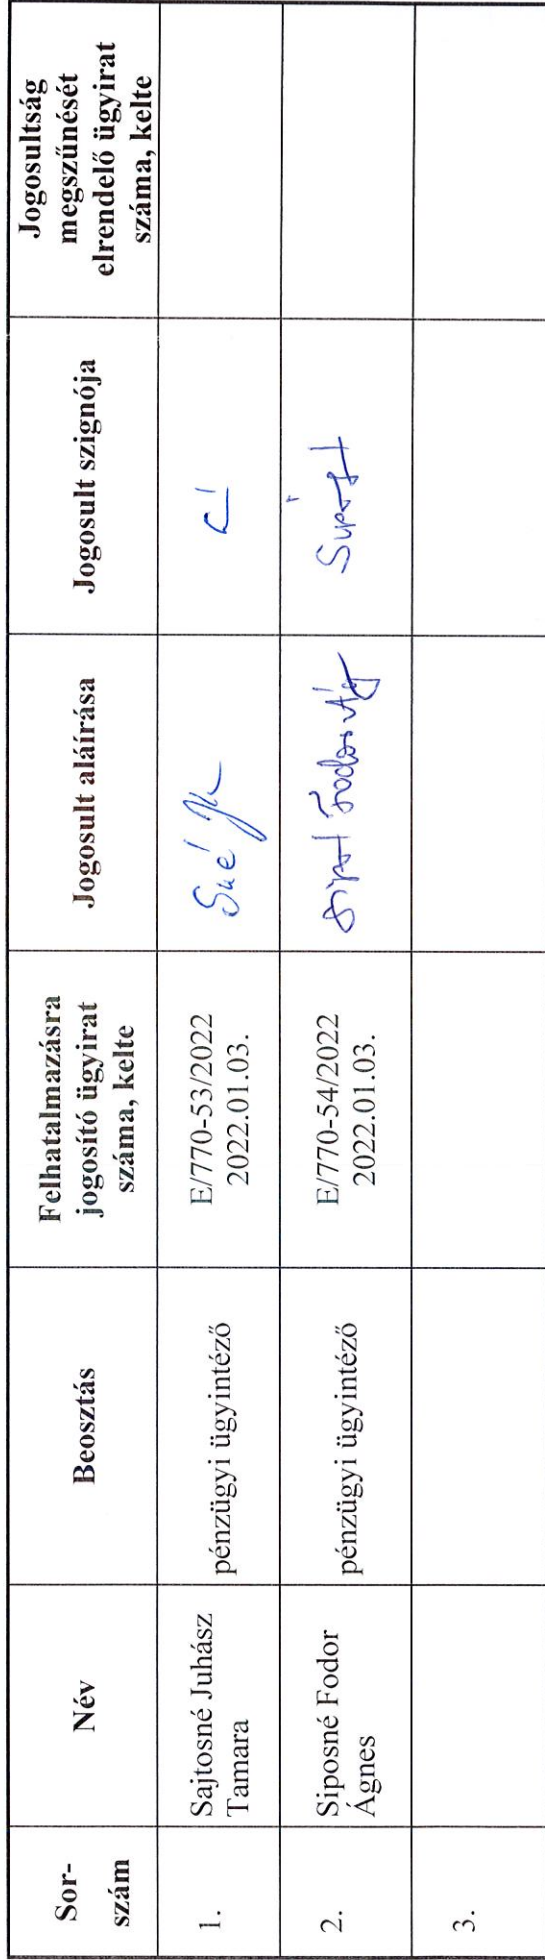 Sor-
szám
Név
Beosztás
Felhatalmazásra
jogosító ügyirat
száma, kelte
Jogosult aláírása
Jogosult szignója
Jogosultság
megszűnését
elrendelő ügyirat
száma, kelte
1.
Sajtosné Juhász
Tamara
pénzügyi ügyintéző
E/770-53/2022
2022.01.03.
2.
Siposné Fodor
Ágnes
pénzügyi ügyintéző
E/770-54/2022
2022.01.03.
3.